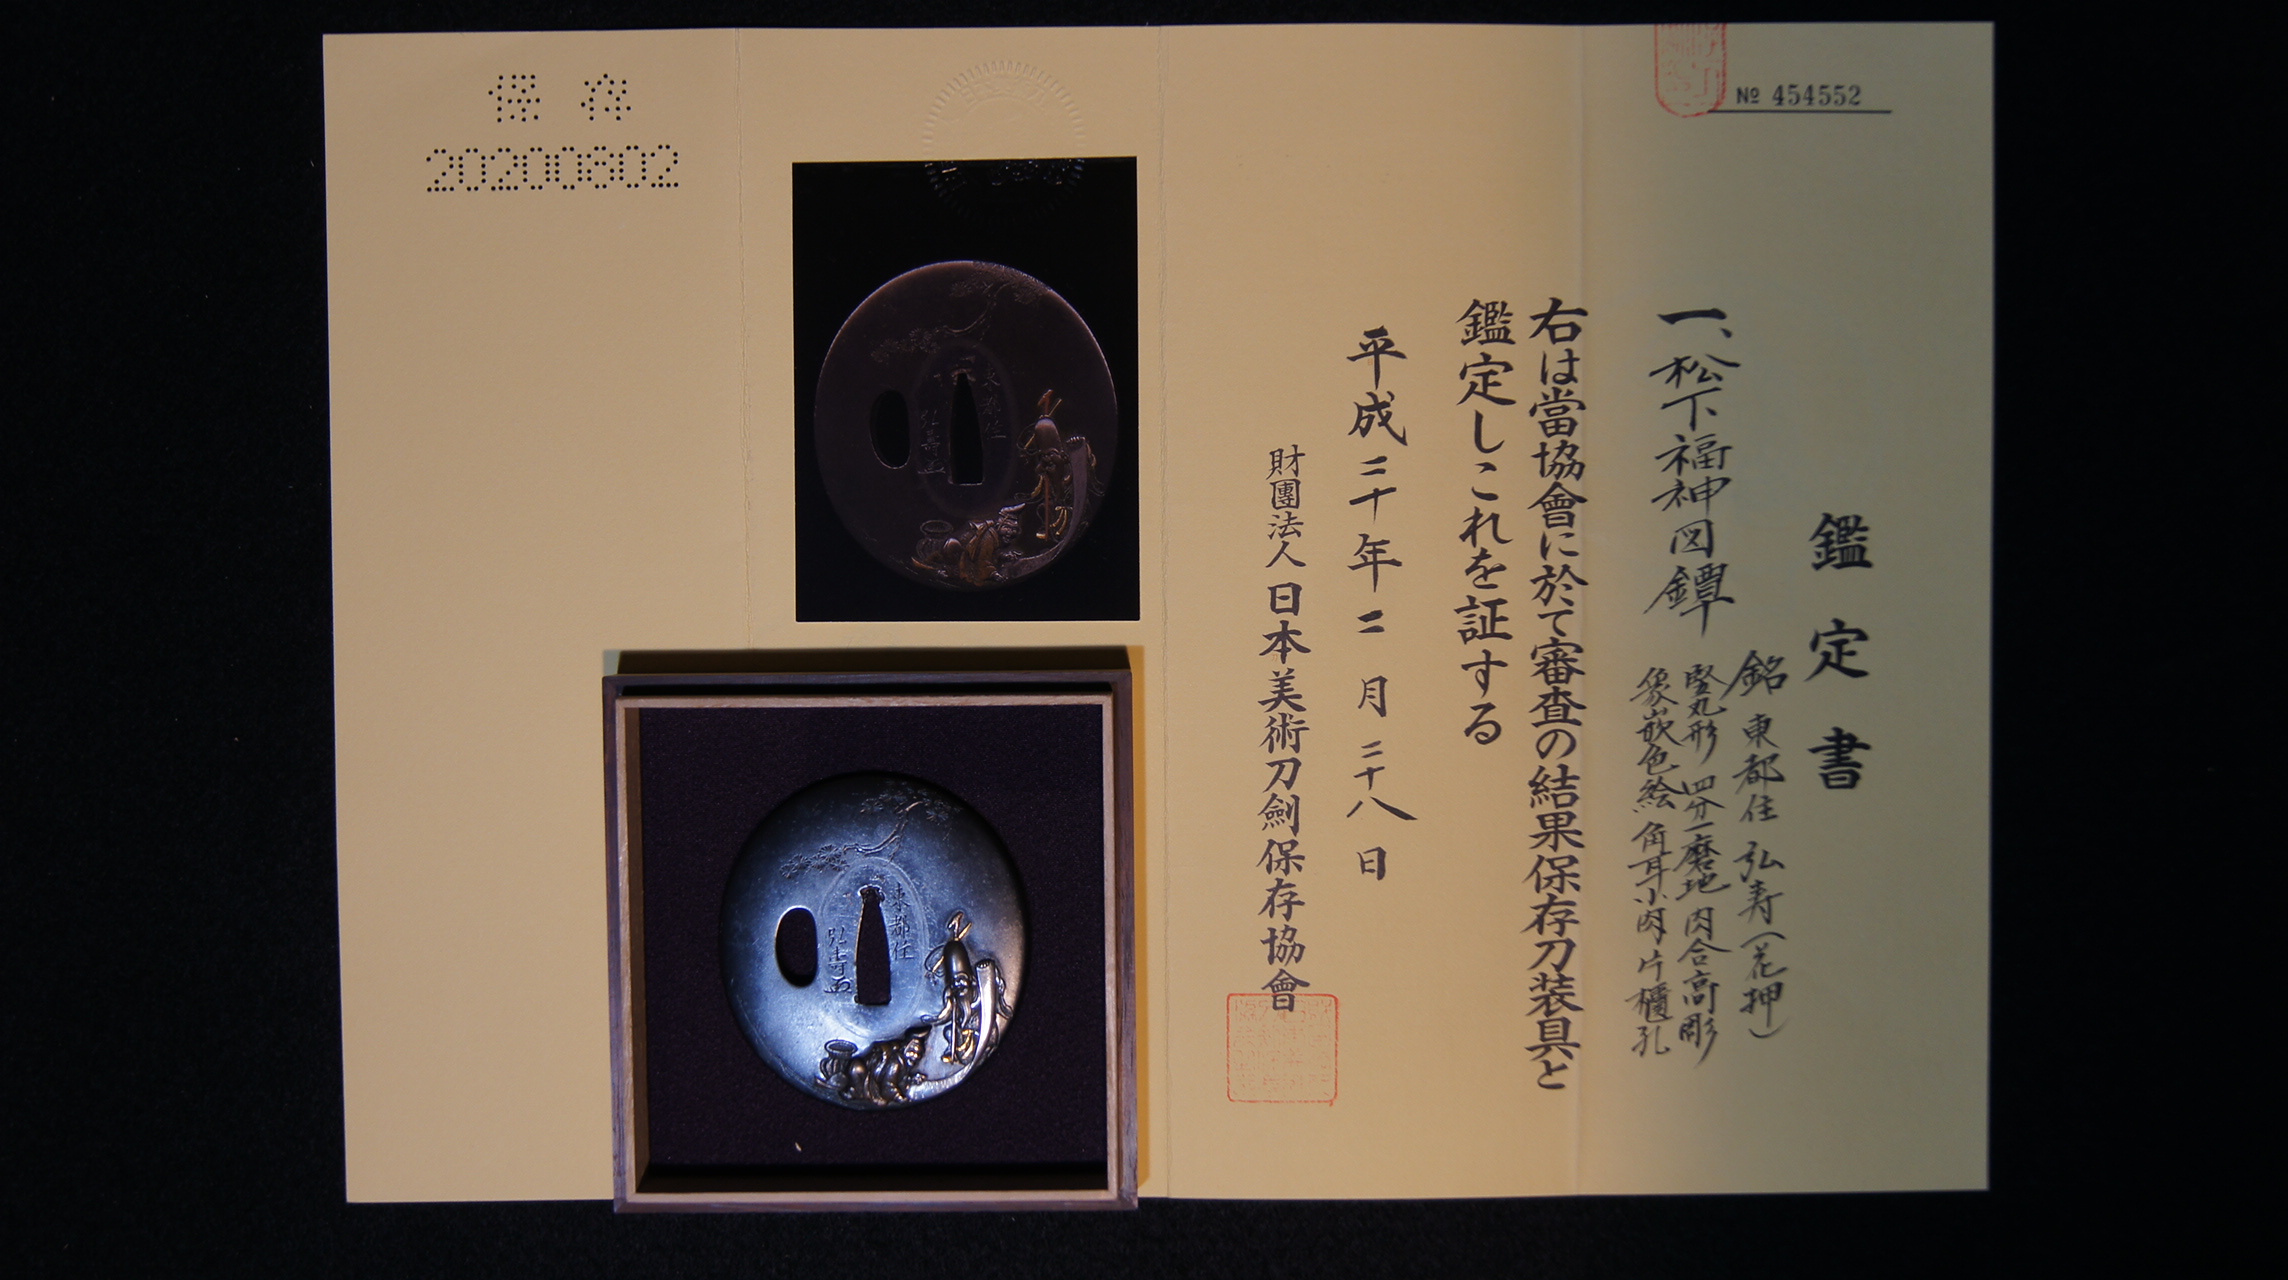 № 454552
鑑定書
一、松下福神図鐔
銘 東都住 弘寿(花押)
竪丸形 四分一磨地 肉合高彫
象嵌色絵 角耳小肉 片櫃孔
右は當協會に於て審査の結果保存刀装具と
鑑定しこれを証する
平成二十年二月二十八日
財團法人 日本美術刀劍保存協會
保存
20200802
東都住
弘寿
東都住
弘寿